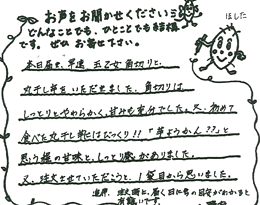 お声をお聞かせください
どんなことでも、ひとことでも結構
です。ぜひ お寄せ下さい。
ほした
本日昼頃、早速 玉乙女角切りと、
丸干し芋をいただきました。角切りは
しっとりとやわらかく、甘みも充分でした。又、初めて
食べた丸干し芋にはびっくり!!「芋ようかん??」と
思う程の甘味と、しっとり感がありました。
又、注文させていただこうと、1袋目から思いました。
注文時と、届く日にちの目安がわかると
有難いです。